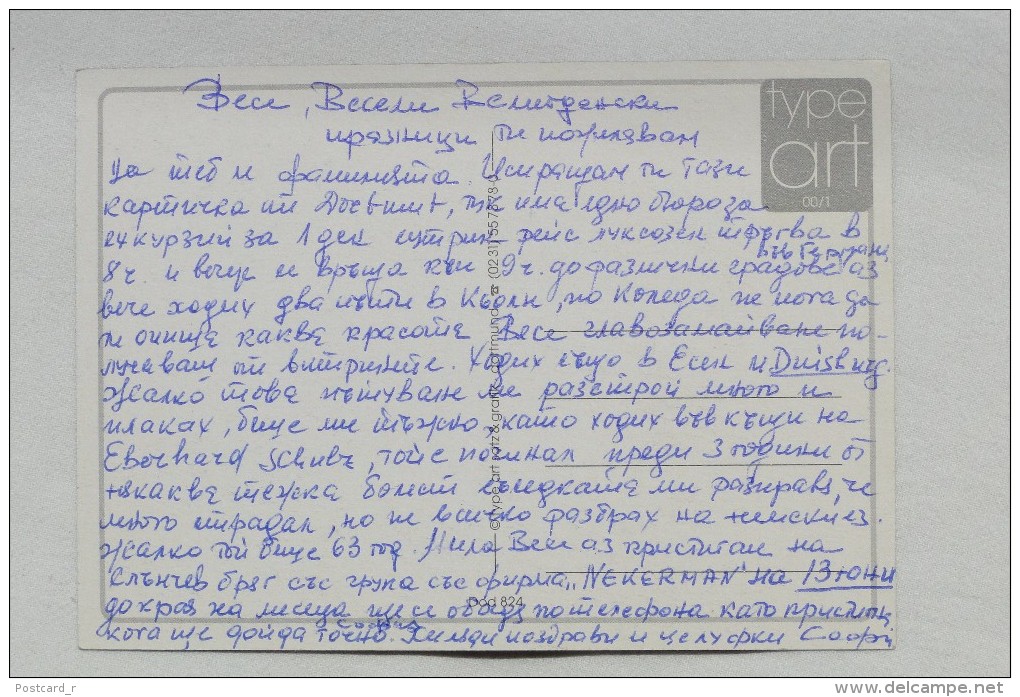 Веси, Весели Великденски
празници ти пожелавам
на теб и фамилията. Изпращам ти тази
картичка от Dortmund, тук има едно бюро за
екскурзии за 1 ден сутрин рейс луксозен тръгва в
във Германия
8 ч. и вечер се връща към 9 ч. до различни градове аз
вече ходих два пъти в Кьолн, по Коледа не мога да
ти опиша каква красота Веси главозамайване по-
лучаваш от витрините. Ходих също в Есен и Duisburg.
Жалко това пътуване ме разстрой много и
плаках, беше ми тъжно, като ходих във къщи на
Eberhard Schulz, той е починал преди 3 години от
някаква тежка болест съседката ми разправя, че
много страдал, но не всичко разбрах на немски ез.
Жалко той беше 63 год. Мила Веси аз пристигам на
Слънчев бряг със група със фирма "NEKERMAN" на 13 юни
до края на месеца ще се обадя по телефона като пристигна
кога ще дойда точно. Хиляди поздрави и целувки
София
type
art
00/1
© type art satz & grafik, dortmund ☎ (0231) 557878-0
Dod 824
Postcard_r
www.delcampe.net